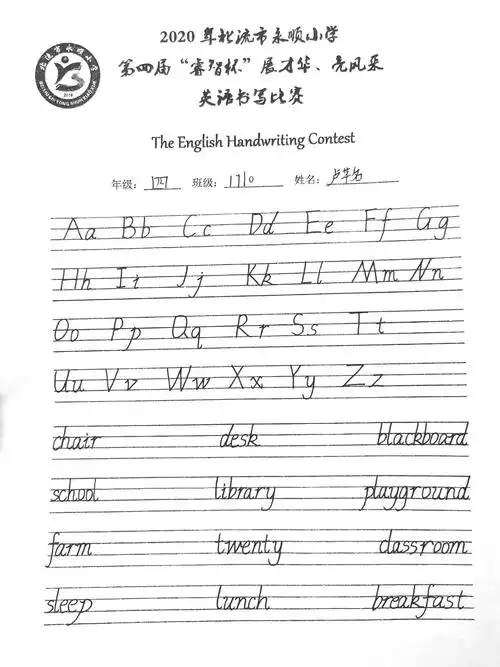 2020年北流市永顺小学
第四届“睿智杯”展才华、亮风采
英语书写比赛
The English Handwriting Contest
年级：四 班级：1710 姓名：卢
Aa Bb Cc Dd Ee Ff Gg
Hh Ii Jj Kk Ll Mm Nn
Oo Pp Qq Rr Ss Tt
Uu Vv Ww Xx Yy Zz
chair desk blackboard
school library playground
farm twenty classroom
sleep lunch breakfast